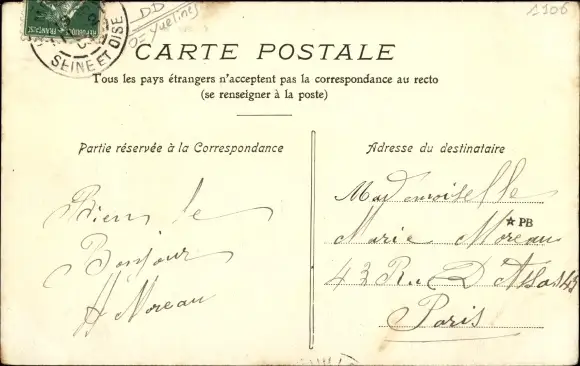 1906
DD
D= Yvelines
SEINE ET OISE
CARTE POSTALE
Tous les pays étrangers n'acceptent pas la correspondance au recto
(se renseigner à la poste)
Partie réservée à la Correspondance
Adresse du destinataire
Bien le
Bonjour
H Moreau
Mademoiselle
Marie Moreau
PB
43 Rue D'Assas
Paris